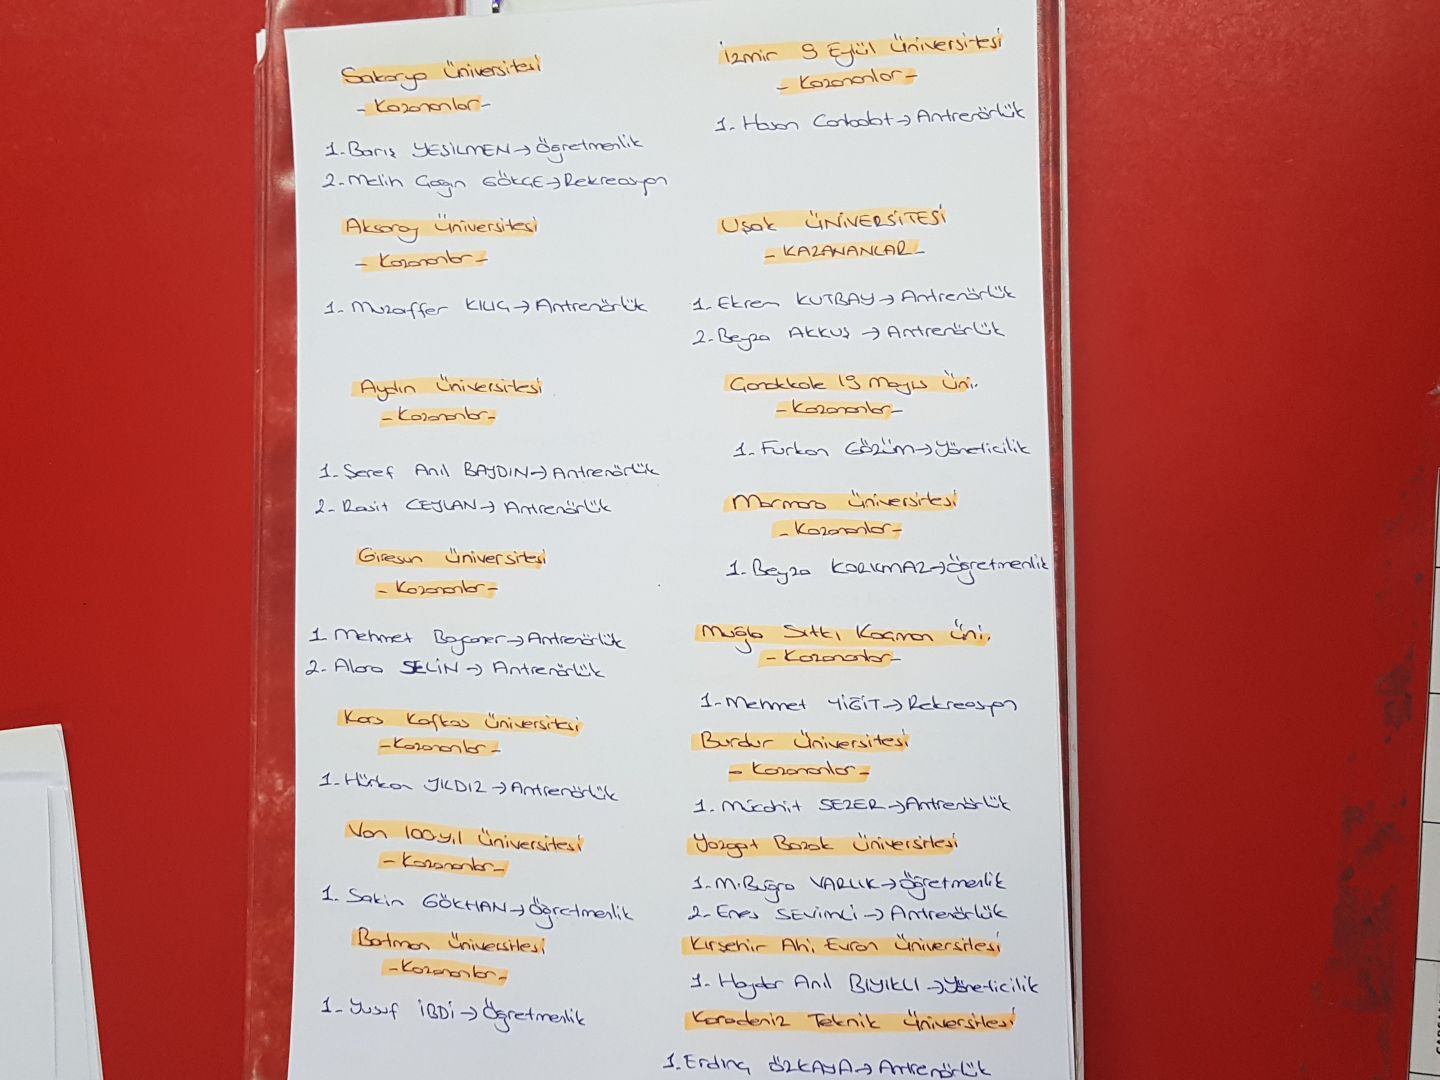 Sakarya Üniversitesi
- Kazananlar -
1. Barış YEŞİLMEN → Öğretmenlik
2. Melih Çağın GÖKÇE → Rekreasyon
Aksaray Üniversitesi
- Kazananlar -
1. Muzaffer KILIÇ → Antrenörlük
Aydın Üniversitesi
- Kazananlar -
1. Şeref Anıl BAYDIN → Antrenörlük
2. Raşit CEYLAN → Antrenörlük
Giresun Üniversitesi
- Kazananlar -
1. Mehmet → Antrenörlük
2. SELİN → Antrenörlük
Kars Kafkas Üniversitesi
- Kazananlar -
1. Hürkan YILDIZ → Antrenörlük
Van 100.yıl Üniversitesi
- Kazananlar -
1. Sakin GÖKHAN → Öğretmenlik
Batman Üniversitesi
- Kazananlar -
1. Yusuf İBDİ → Öğretmenlik
İzmir 9 Eylül Üniversitesi
- Kazananlar -
1. Hasan Canbolat → Antrenörlük
Uşak ÜNİVERSİTESİ
- KAZANANLAR -
1. Ekrem KUTBAY → Antrenörlük
2. Beyza AKKUŞ → Antrenörlük
Çanakkale 19 Mayıs Üni.
- Kazananlar -
1. Furkan GÖZÜM → Yöneticilik
Marmara Üniversitesi
- Kazananlar -
1. Beyza KORKMAZ → Öğretmenlik
Muğla Sıtkı Koçman Üni.
- Kazananlar -
1. Mehmet YİĞİT → Rekreasyon
Burdur Üniversitesi
- Kazananlar -
1. Mücahit SEZER → Antrenörlük
Yozgat Bozok Üniversitesi
1. M.Buğra VARLIK → Öğretmenlik
2. Enes SEVİMLİ → Antrenörlük
Kırşehir Ahi Evran Üniversitesi
1. Haydar Anıl BIYIKLI → Yöneticilik
Karadeniz Teknik Üniversitesi
1. Erdinç ÖZKAYA → Antrenörlük